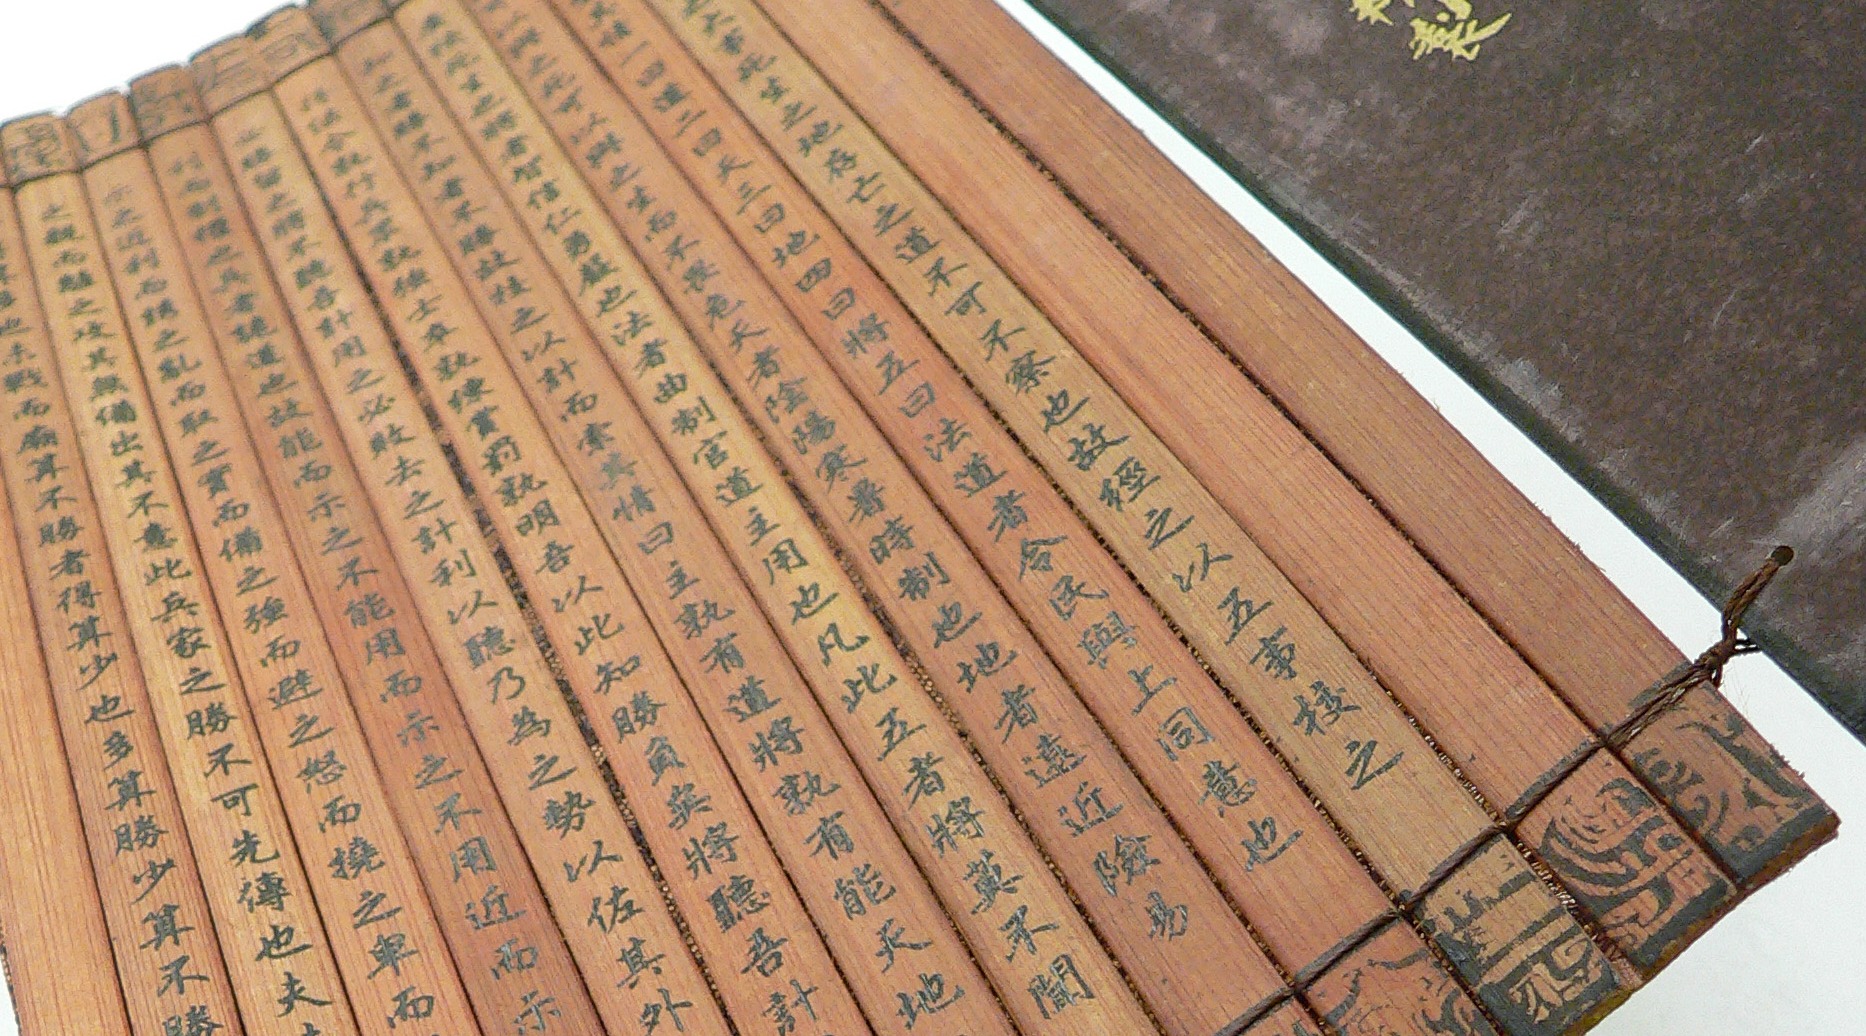 之大事死生之地存亡之道不可不察也故經之以五事校之
其情一曰道二曰天三曰地四曰將五曰法道者令民與上同意也
以與之死可以與之生而不畏危天者陰陽寒暑時制也地者遠近險易
廣狹死生之將者智信仁勇嚴也法者曲制官道主用也凡此五者將莫不聞
知之者勝不知者不勝故校之以計而索其情曰主孰有道將孰有能天地
法令孰行兵眾孰強士卒孰練賞罰孰明吾以此知勝負矣將聽吾計
必勝留之將不聽吾計用之必敗去之計利以聽乃為之勢以佐其外
利而制權之兵者詭道也故能而示之不能用而示之不用近而示
示之近利而誘之亂而取之實而備之強而避之怒而撓之卑而
之親而離之攻其無備出其不意此兵家之勝不可先傳也夫
也未戰而廟算不勝者得算少也多算勝少算不勝